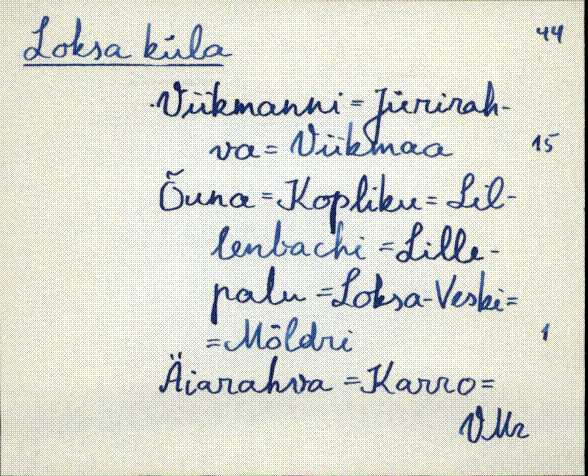 Loksa küla 44
Viikmanni = Jürirah-
va = Viikmaa 15
Õuna = Kopliku = Lil-
lenbachi = Lille-
palu = Loksa-Veski =
= Möldri 1
Äiarahva = Karro =